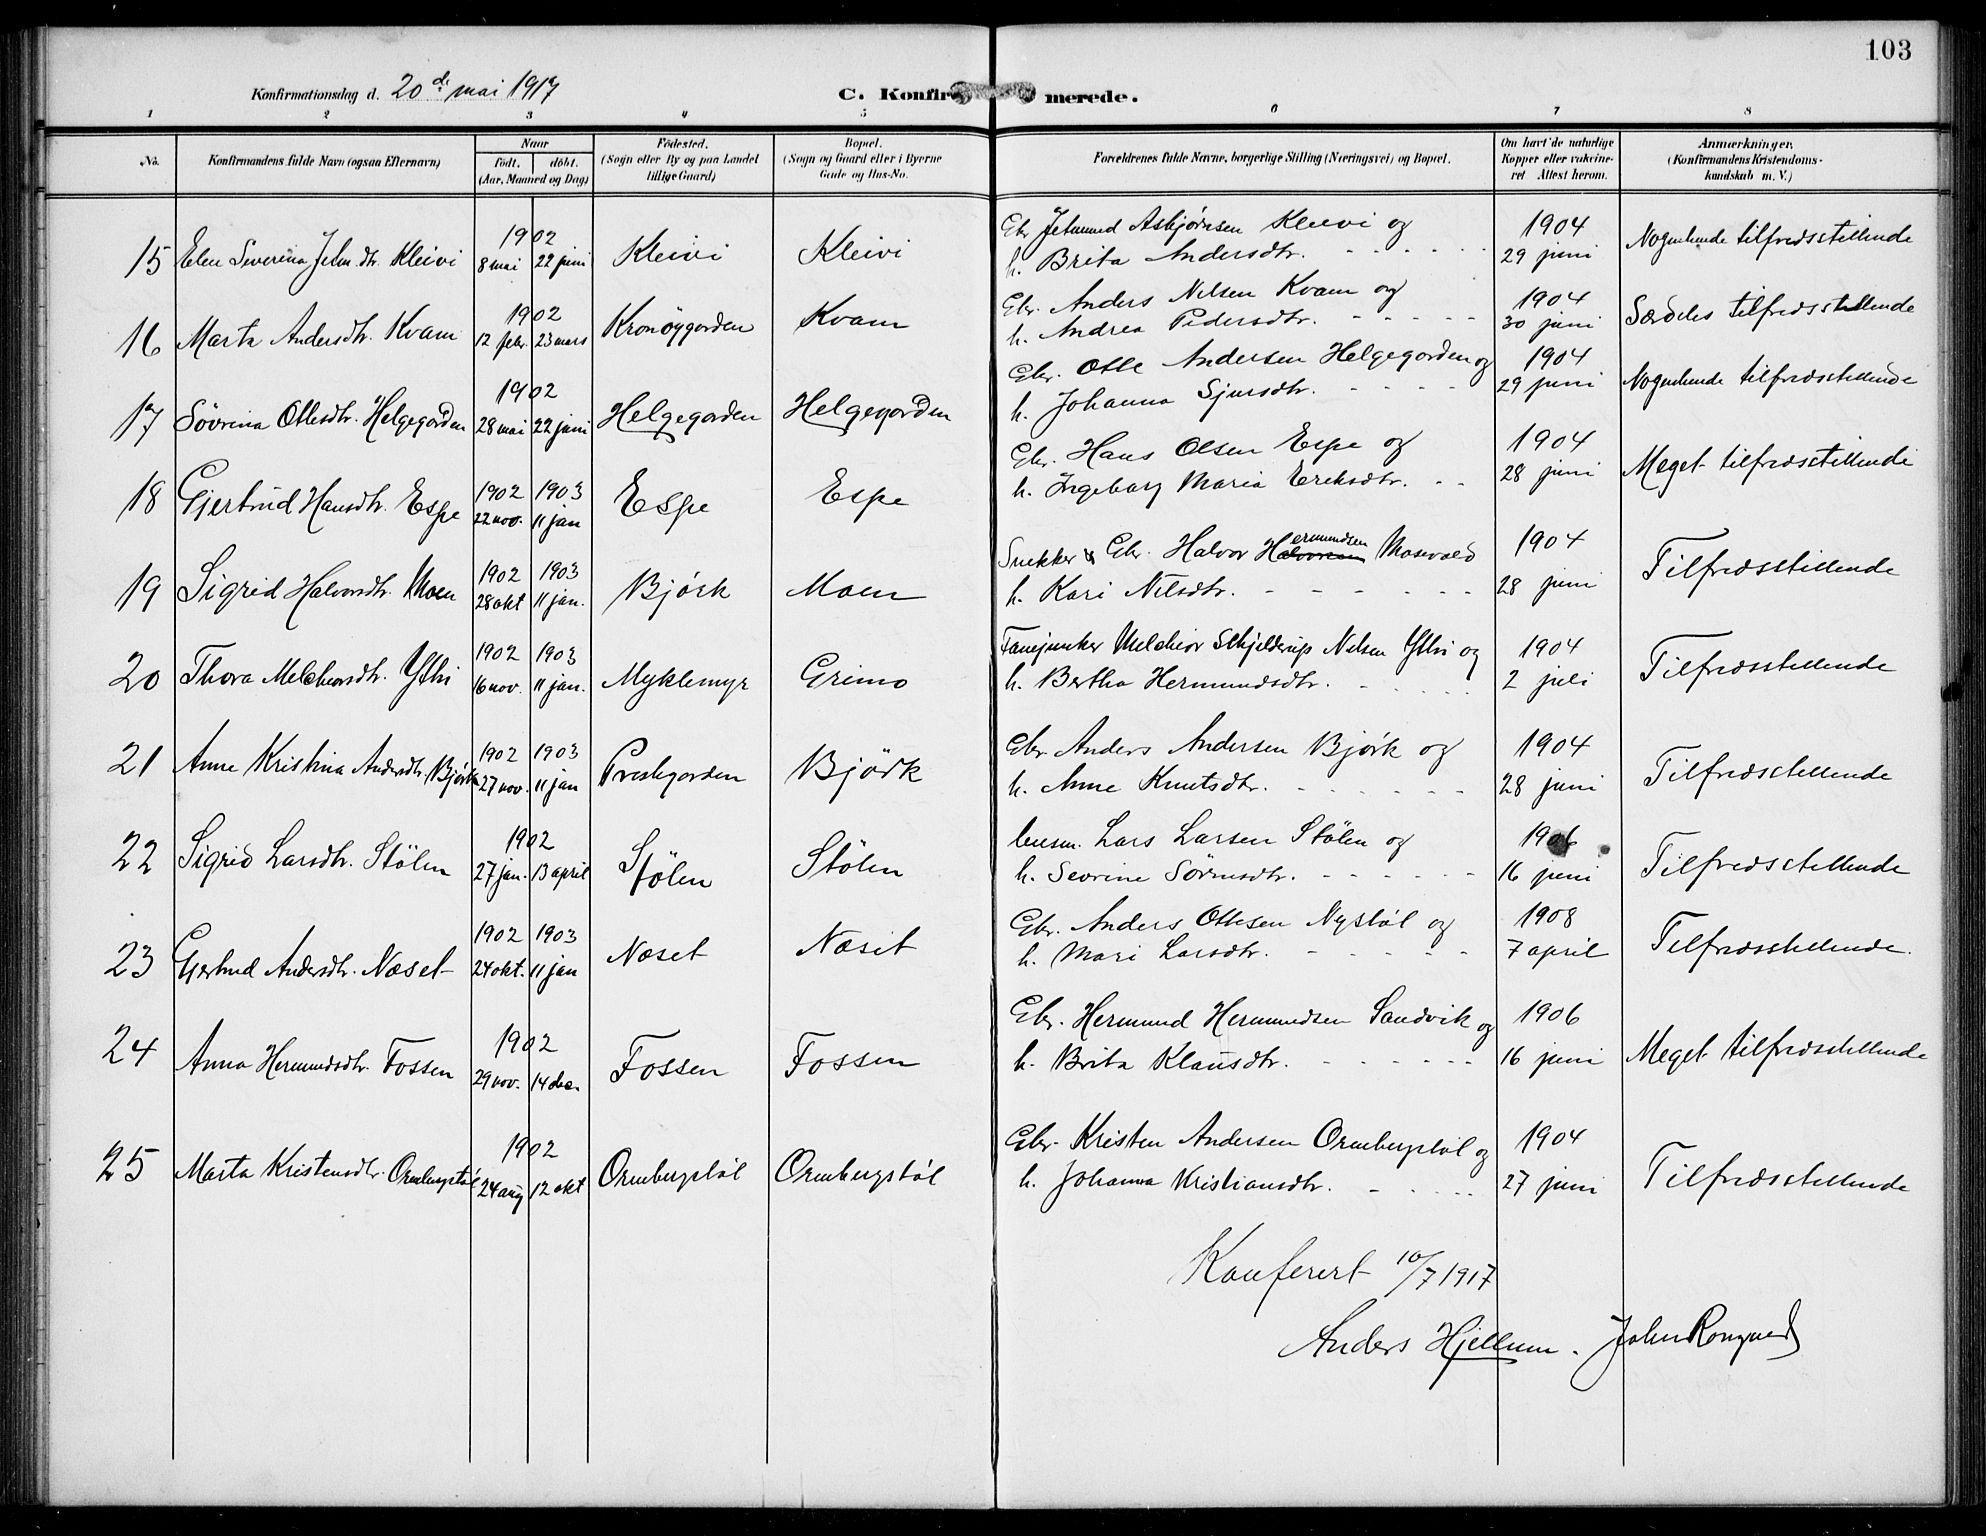 103
Konfirmationsdag d. 20 d. mai 1917
C. Konfirmerede.
1 2 3 4 5 6 7 8
No. Konfirmandens fulde Navn (ogsaa Efternavn) Naar født. døbt. (Aar, Maaned og Dag) Fødested. (Sogn eller By og paa Landet tillige Gaard) Bopæl. (Sogn og Gaard eller i Byerne Gade og Hus-No. Forældrenes fulde Navne, borgerlige Stilling (Næringsvei) og Bopæl. Om havt de naturlige Kopper eller vakcineret Attest herom. Anmærkninger, (Konfirmandens Kristendomskundskab m. V.)
15 Elen Severina Jetm.dtr. Kleivi 1902 8 mai 22 juni Kleivi Kleivi Gbr. Jetmund Asbjørnsen Kleivi og 1904 Nogenlunde tilfredsstillende
h. Brita Andersdtr. 29 juni
16 Marta Andersdtr. Kvam 1902 12 febr. 23 mars Kronøygorden Kvam Gbr. Anders Nilsen Kvam og 1904 Særdeles tilfredsstillende
h. Andrea Pedersdtr. 30 juni
17 Søvrina Ottesdtr. Helgegorden 1902 28 mai 22 juni Helgegorden Helgegorden Gbr. Otte Andersen Helgegorden og 1904 Nogenlunde tilfredsstillende
h. Johanna Sjursdtr. 29 juni
18 Gjertrud Hansdtr. Espe 1902 22 nov. 1903 11 jan Espe Espe Gbr. Hans Olsen Espe og 1904 Meget tilfredsstillende
h. Ingeborg Maria Eriksdtr. 28 juni
19 Sigrid Halvorsdtr. Moen 1902 28 okt 1903 11 jan. Bjørk Moen Snekker & Gbr. Halvor Hermundsen Mosevold 1904 Tilfredsstillende
h. Kari Nilsdtr. 28 juni
20 Thora Melchiorsdtr. Ytri 1902 16 nov. 1903 11 jan. Myklemyr Grimo Fanejunker Melchior Schjelderup Nilsen Ytri og 1904 Tilfredsstillende
h. Bertha Hermundsdtr. 2 juli
21 Anne Kristina Andersdtr. Bjørk 1902 27 nov. 1903 11 jan Prestegorden Bjørk Gbr. Anders Andersen Bjørk og 1904 Tilfredsstillende
h. Anne Knutsdtr. 28 juni
22 Sigrid Larsdtr. Stölen 1902 27 jan. 13 april Stölen Stölen Lars Larsen Stölen og 1906 Tilfredsstillende
h. Sevrine Sörensdtr. 16 juni
23 Gertrud Andersdtr. Næset 1902 24 okt. 1903 11 jan Næset Næset Gbr. Anders Ottesen Nystøl og 1908 Tilfredsstillende.
h. Mari Larsdtr. 7 april
24 Anna Hermundsdtr. Fossen 1902 29 nov. 14 des. Fossen Fossen Gbr. Hermund Hermundsen Sandvik og 1906 Meget tilfredsstillende
h. Brita Klausdtr. 16 juni
25 Marta Kristensdtr. Ormbergstøl 1902 24 aug 12 okt Ormbergstøl Ormbergstøl Gbr. Kristen Andersen Ormbergstøl og 1904 Tilfredsstillende
h. Johanna Kristiansdtr. 27 juni
Konferert 10/7 1917
Anders Hjellum.